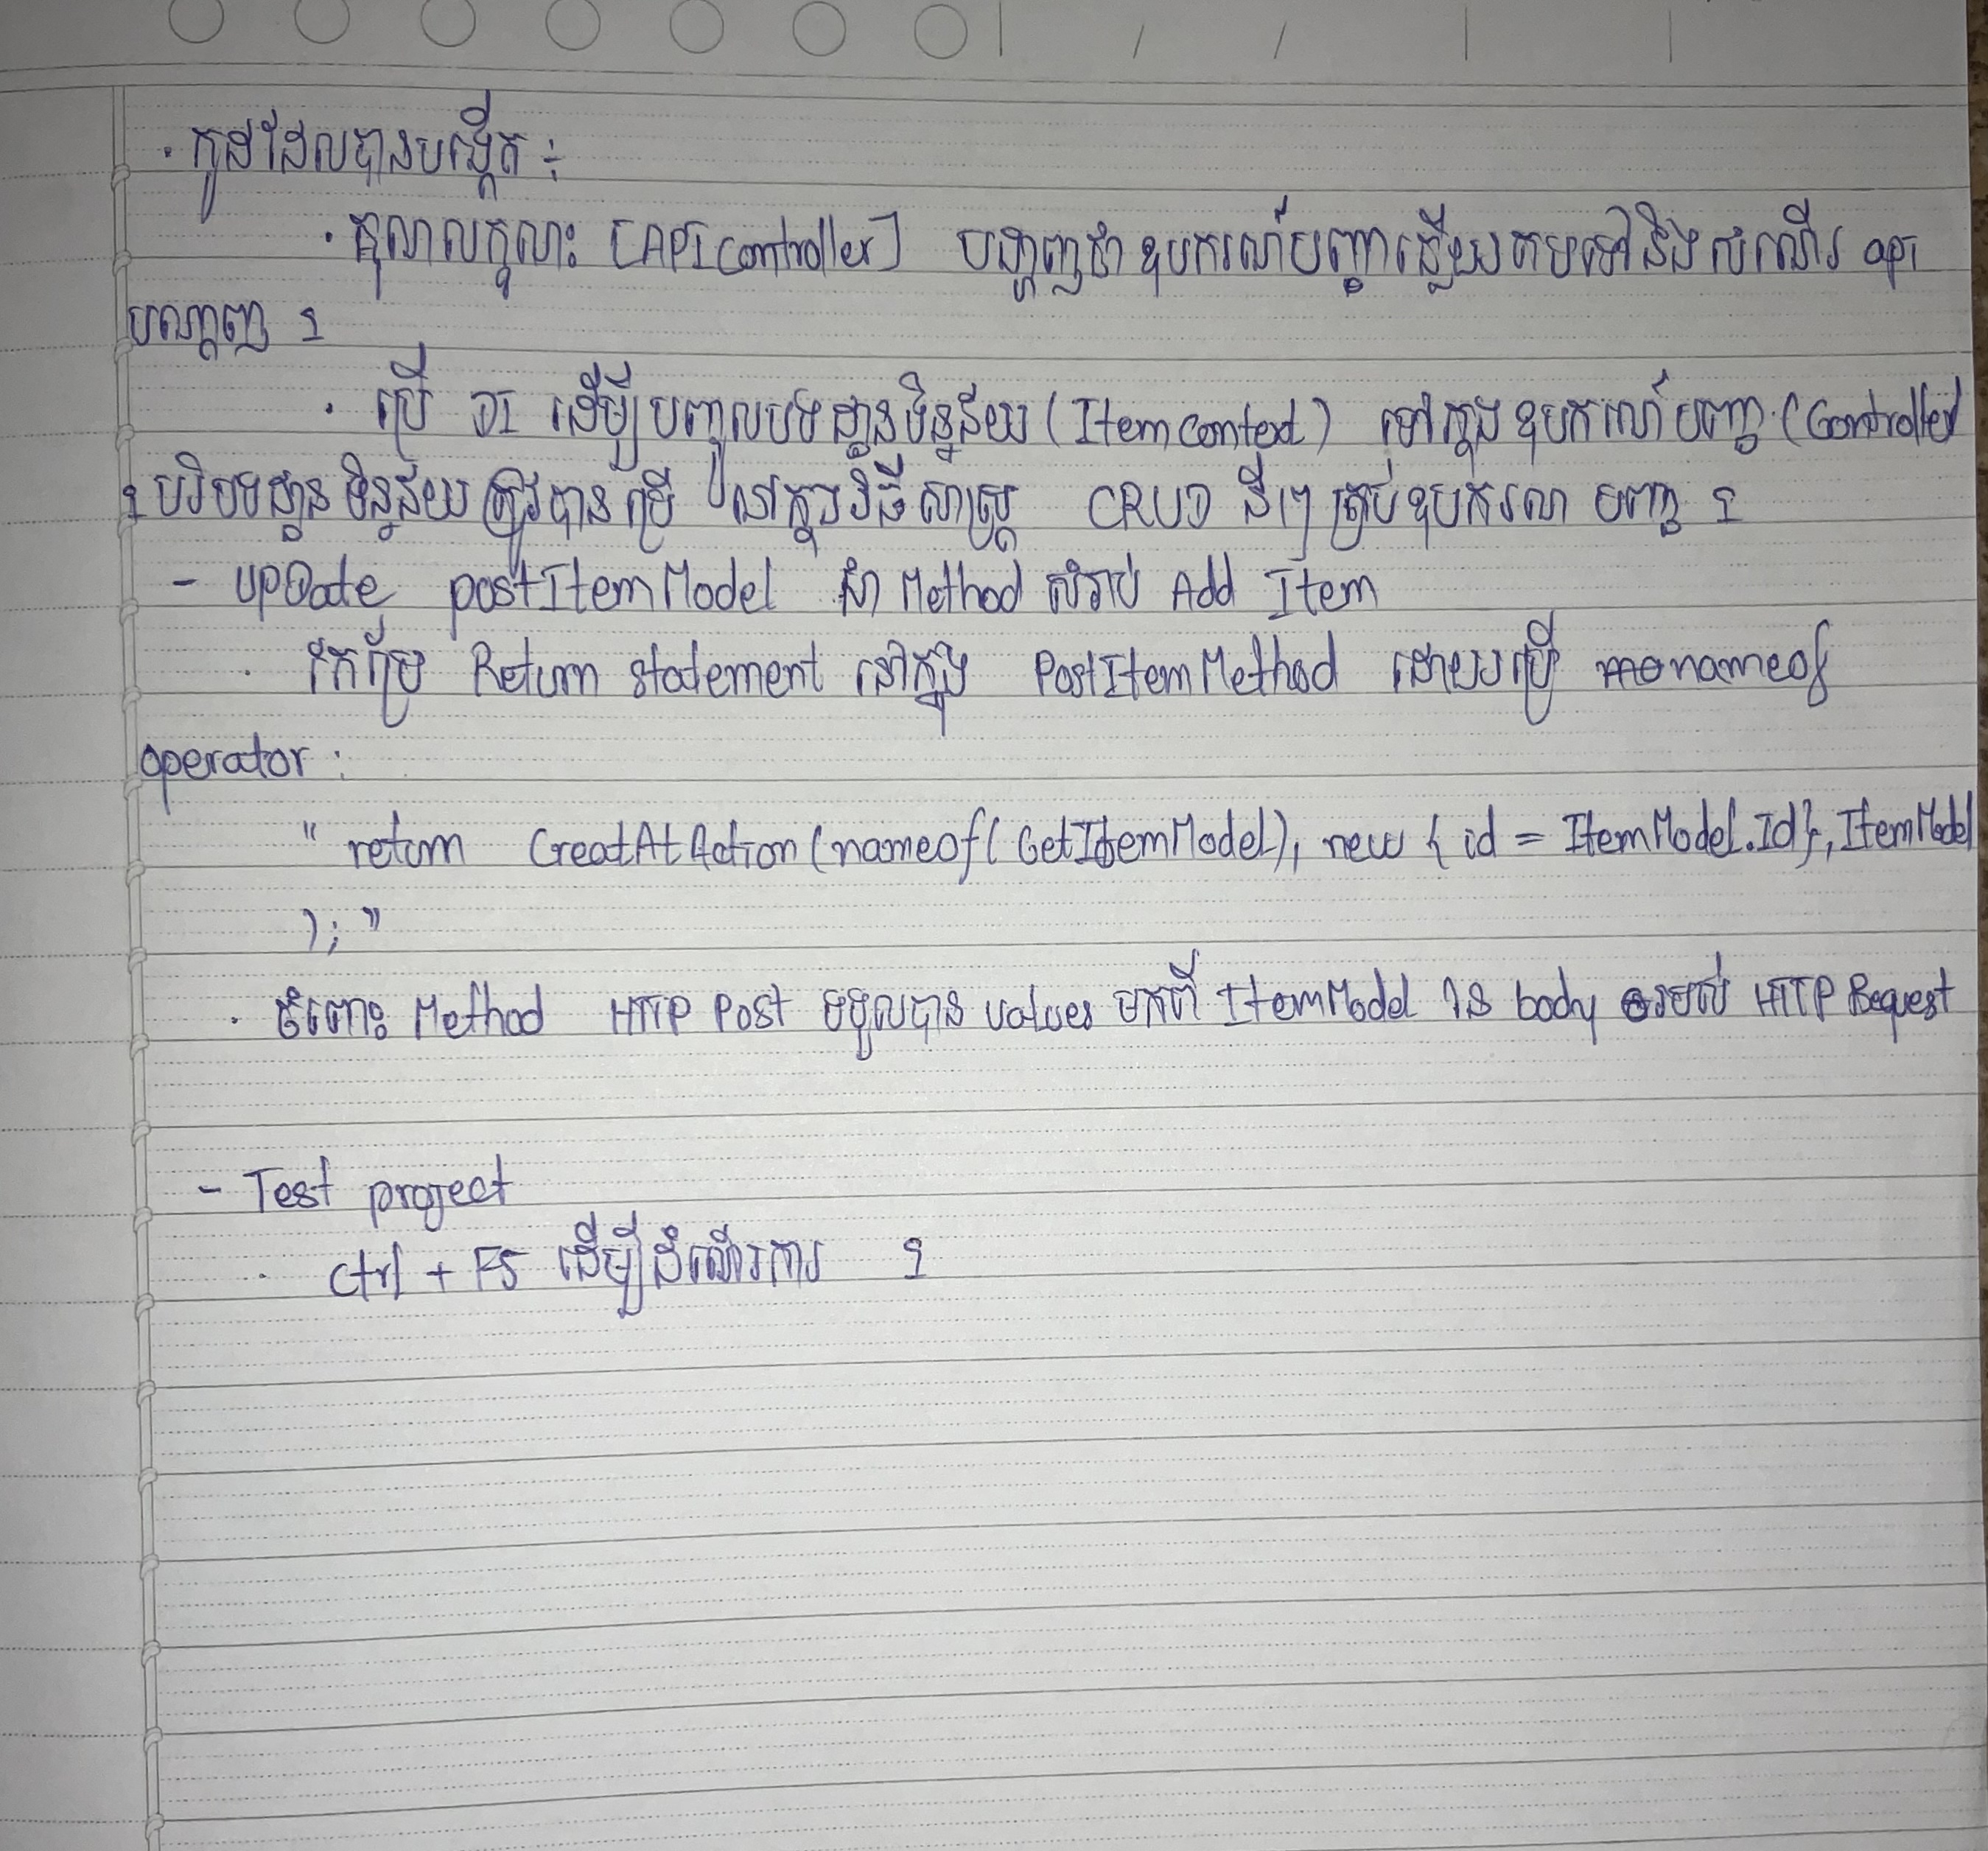 · កូដដែលបានបង្កើត ÷
· គុណលក្ខណះ [API Controller] បង្ហាញថា ឧបករណ៍បញ្ជាឆ្លើយតបទៅនឹងសំណើរ api
បណ្តាញ ។
· ប្រើ DI ដើម្បីបញ្ចូលបរិបទដ្ឋានទិន្នន័យ (Item Context) ទៅក្នុងឧបករណ៍បញ្ជា (Controller
។ បរិបទដ្ឋានទិន្នន័យត្រូវបានប្រើ នៅក្នុងវិធីសាស្ត្រ CRUD នីៗគ្រប់ឧបករណ បញ្ជា ។
- UpDate postItemModel ជា Method សំរាប់ Add Item
· កែប្រែ Return statement នៅក្នុង PostItemMethod ដោយប្រើ nameof
operator :
" return CreatAtAction(nameof( GetItemModel), new { id = ItemModel.Id}, ItemModel
); "
· ចំពោះ Method HTTP Post ទទួលបាន values មកពី ItemModel នៃ body របស់ HTTP Request
- Test project
· Ctrl + F5 ដើម្បីដំណើរការ ។